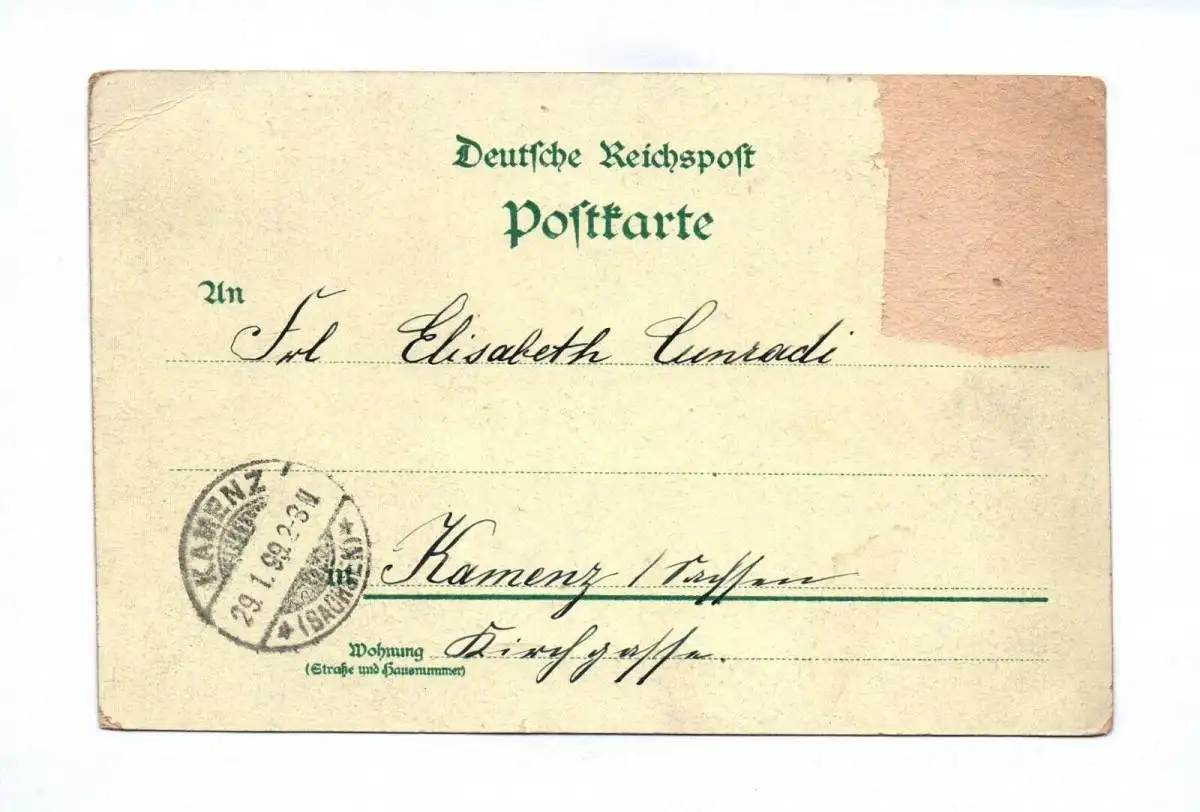 Deutſche Reichspoſt
Poſtkarte
An
Frl Elisabeth Cunradi
KAMENZ
29.1.99.2-3N
*(SACHSEN)*
in Kamenz / Sachsen
Wohnung Kirchgasse.
(Straße und Hausnummer)